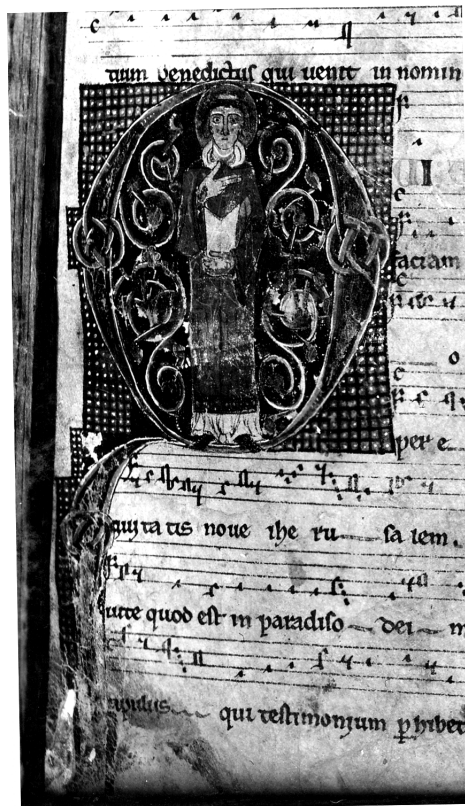 tium benedictus qui uenit in nomin
aciam
o
per e
uitatis noue ihe ru sa lem.
uite quod est in paradiso dei
qui testimonium perhibet